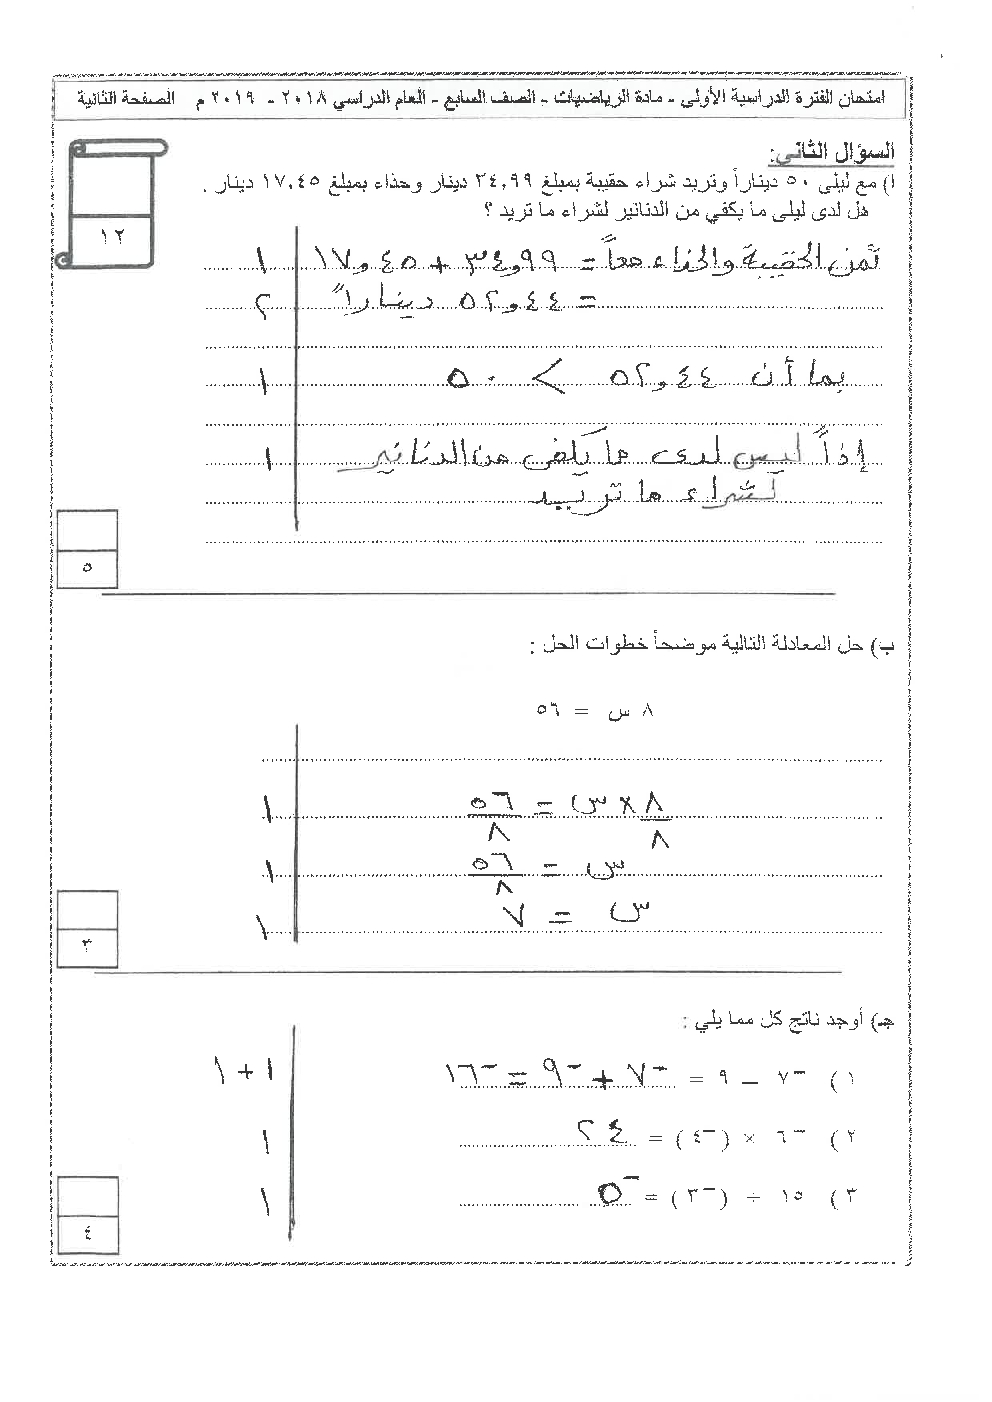 امتحان الفترة الدراسية الأولى - مادة الرياضيات - الصف السابع - العام الدراسي ٢٠١٨ - ٢٠١٩ م الصفحة الثانية
السؤال الثاني:
١٢
أ) مع ليلى ٥٠ ديناراً وتريد شراء حقيبة بمبلغ ٣٤,٩٩ دينار وحذاء بمبلغ ١٧,٤٥ دينار .
هل لدى ليلى ما يكفي من الدنانير لشراء ما تريد ؟
ثمن الحقيبة والحذاء معاً = ٣٤,٩٩ + ١٧,٤٥ ١
= ٥٢,٤٤ ديناراً ٢
بما أن ٥٢,٤٤ > ٥٠ ١
إذاً ليس لدى ما يكفى من الدنانير ١
لشراء ما تريد
٥
ب) حل المعادلة التالية موضحاً خطوات الحل :
٨ س = ٥٦
٨ × س / ٨ = ٥٦ / ٨ ١
س = ٥٦ / ٨ ١
س = ٧ ١
٣
جـ) أوجد ناتج كل مما يلي :
١ ) ⁻٧ – ٩ = ⁻٧ + ⁻٩ = ⁻١٦ ١ + ١
٢ ) ⁻٦ × (⁻٤) = ٢٤ ١
٣ ) ١٥ ÷ (⁻٣) = ⁻٥ ١
٤